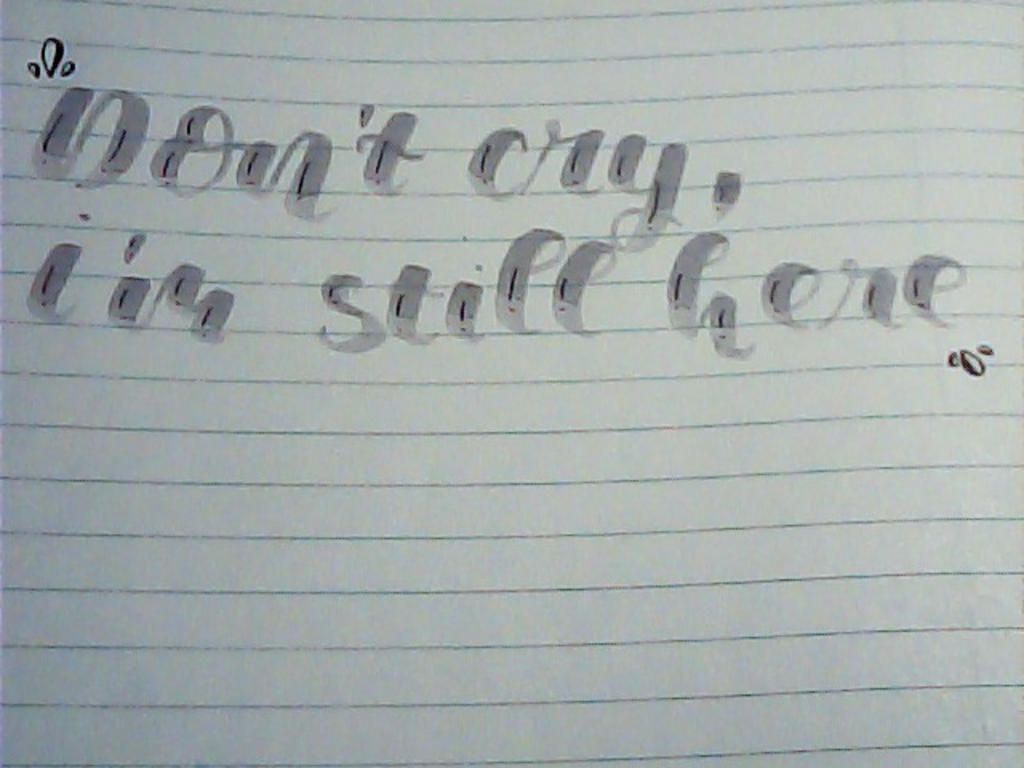 Don't cry,
i'm still here